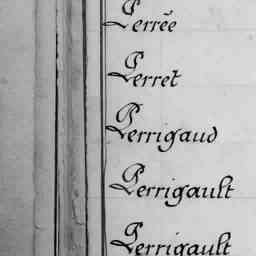 Perrée
Perret
Perrigaud
Perrigault
Perrigault